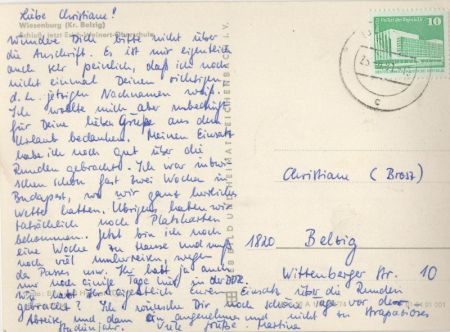 Liebe Christiane!
Wiesenburg (Kr. Belzig)
Schloß, jetzt Erich-Weinert-Oberschule
Wundere Dich bitte nicht über
die Anschrift. Es ist mir eigentlich
auch sehr peinlich, daß ich noch
nicht einmal Deinen richtigen,
d.h. jetzigen Nachnamen weiß.
Ich wollte mich aber unbedingt
für Deine lieben Grüße aus dem
Urlaub bedanken. Meinen Einsatz
habe ich noch gut über die
Runden gebracht. Ich war inzwi-
schen schon fast zwei Wochen in
Budapest, wo wir ganz herrliches
Wetter hatten. Übrigens haben wir
tatsächlich noch Platzkarten
bekommen. Jetzt bin ich noch
eine Woche zu Hause und muß
noch viel umherreisen, wegen
des Passes usw. Ihr habt ja auch
nur noch einige Tage hier in der DDR.
Wie habt Ihr eigentlich Euren Einsatz über die Runden
gebracht? Ich wünsche Dir noch schöne Tage vor der
Abreise und dann ein angenehmes und nicht so strapaziöses
Studienjahr. Viele Grüße Martina
BILD UND HEIMAT REICHENBACH I. V.
10
Christiane (Brosz)
1820 Belzig
Wittenberger Str. 10